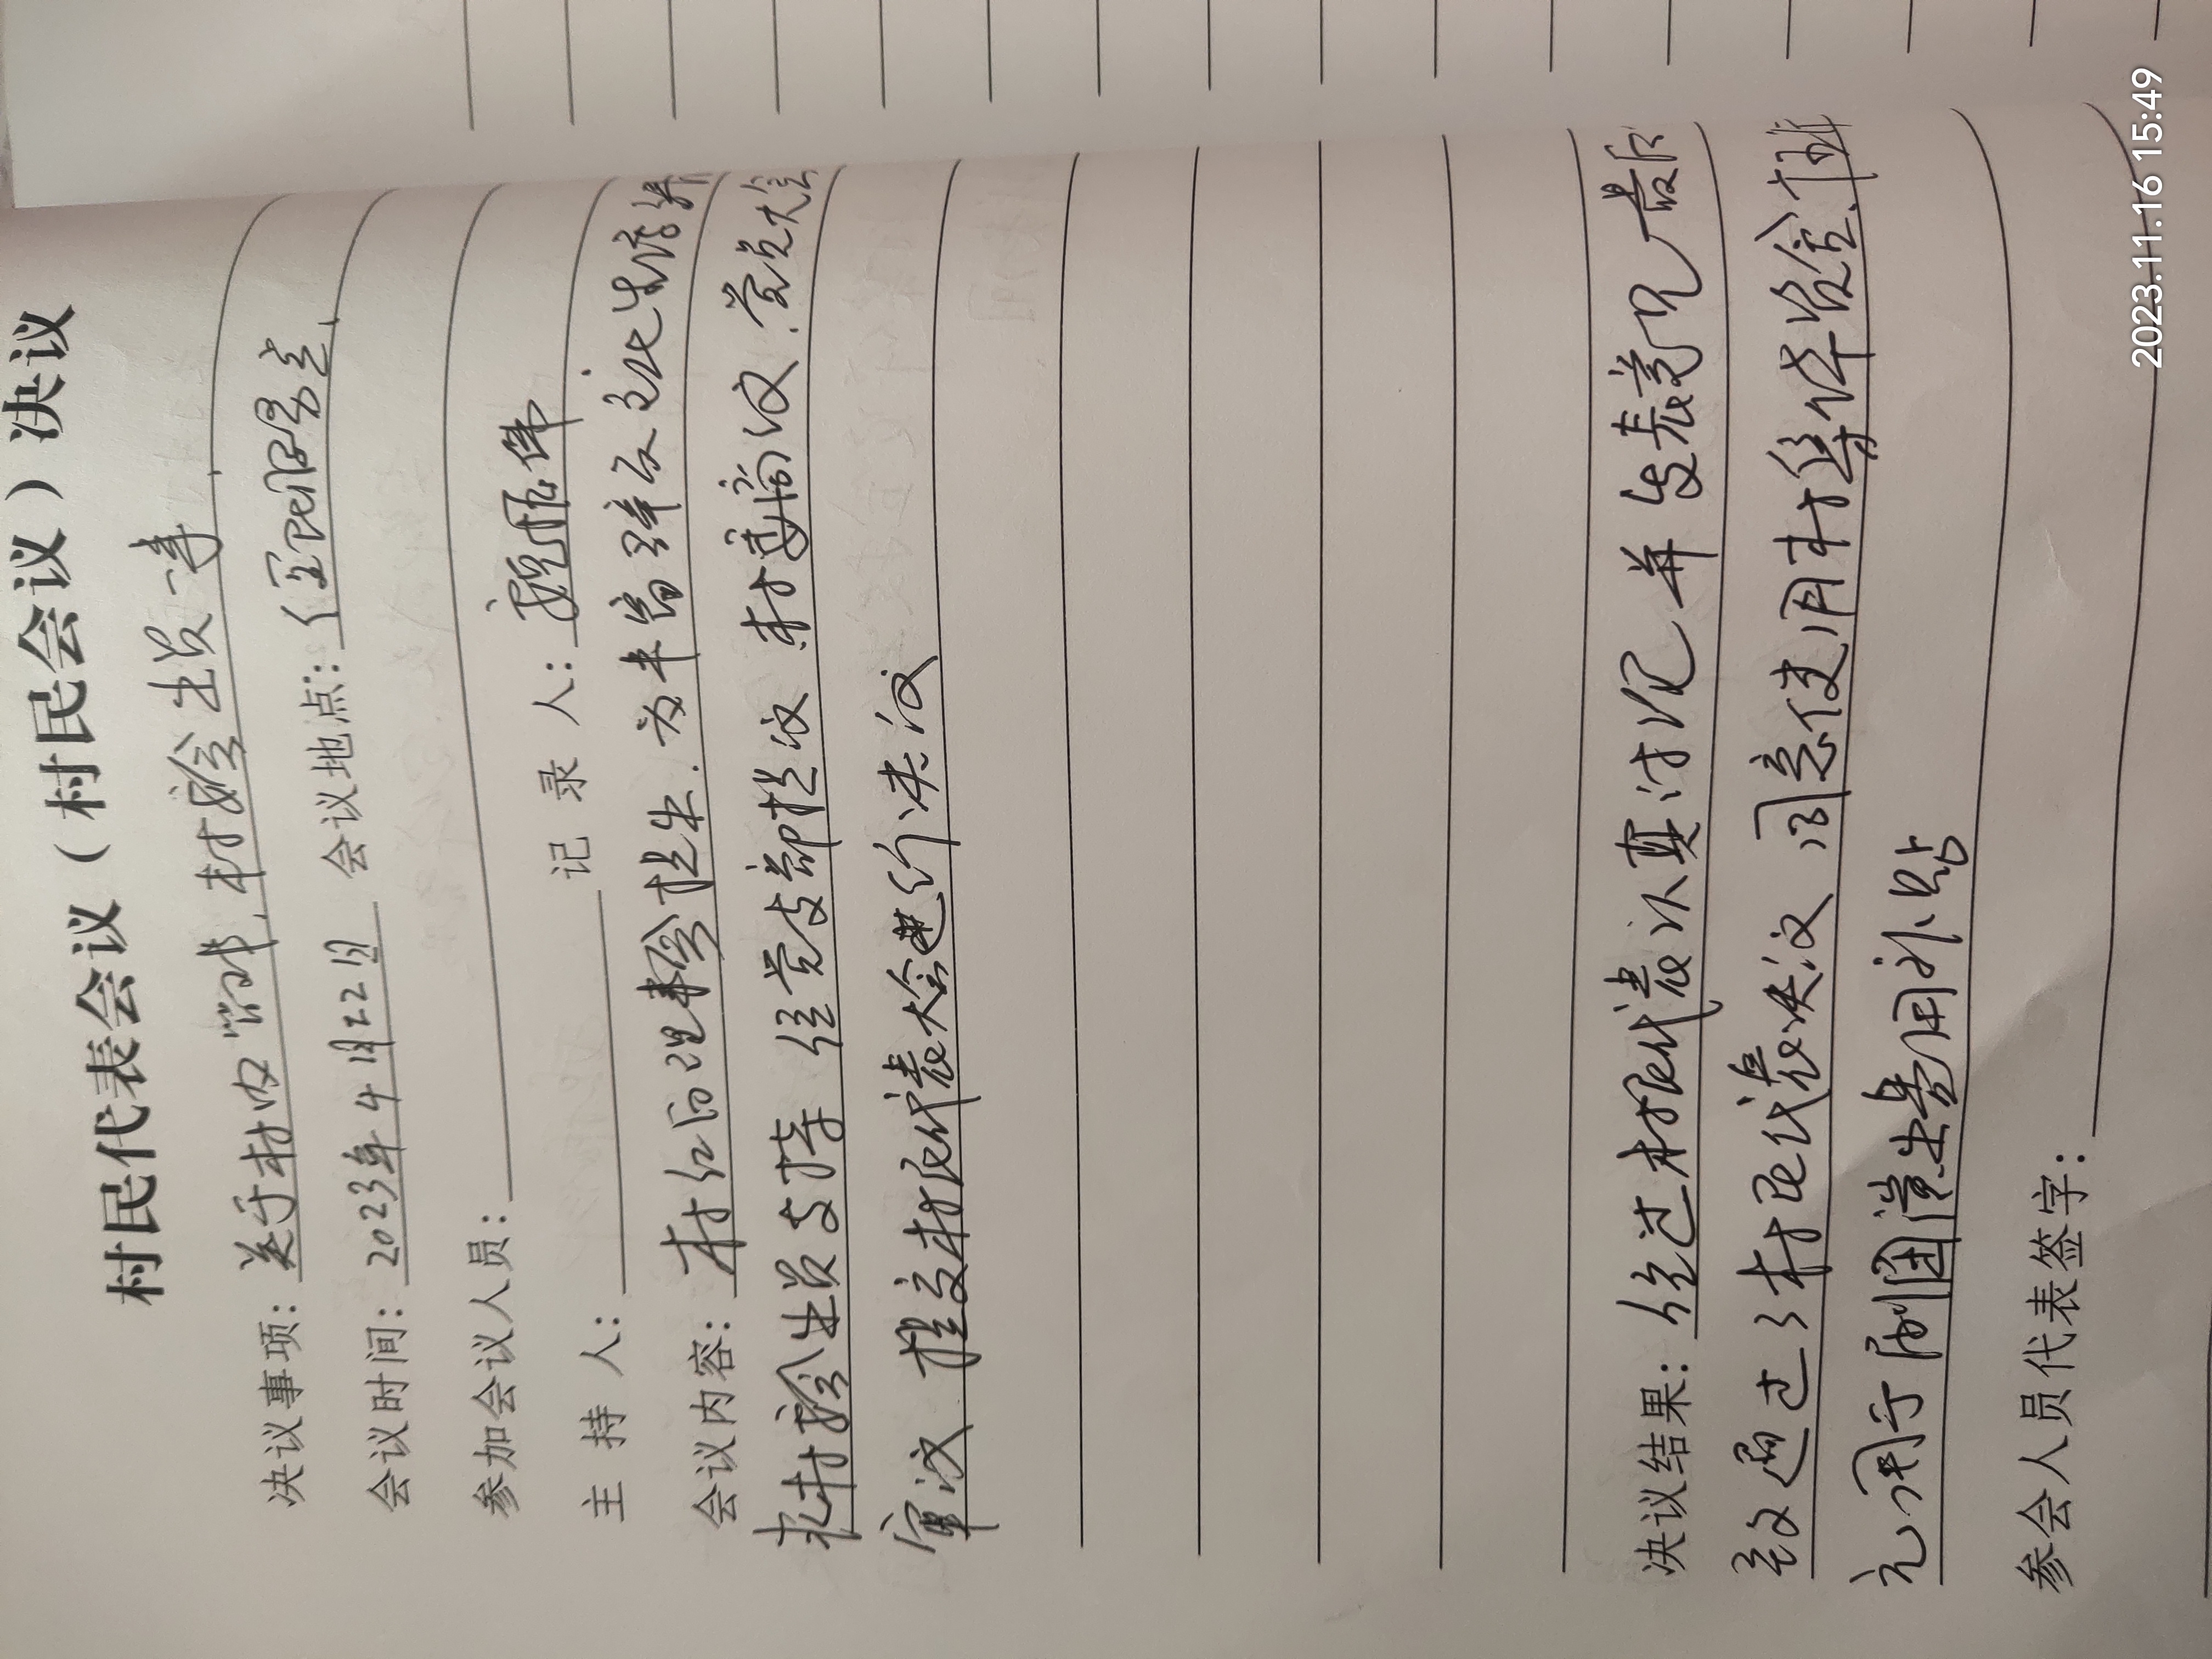 村民代表会议（村民会议）决议
决议事项：关于村内唱戏，村委会出资一事
会议时间：2023年4月22日 会议地点：便民服务点
参加会议人员：
主持人： 记录人：魏振伟
会议内容：村红白理事会提出，为丰富群众文化生活
求村委会出资支持 经党支部提议 村委商议，党员大会
审议 提交村民代表大会进行决议
决议结果：经过村民代表认真讨论 并发表意见 最后
致通过了村民代表决议 同意使用村集体资金
元用于剧团演出费用补贴
参会人员代表签字：
2023.11.16 15:49